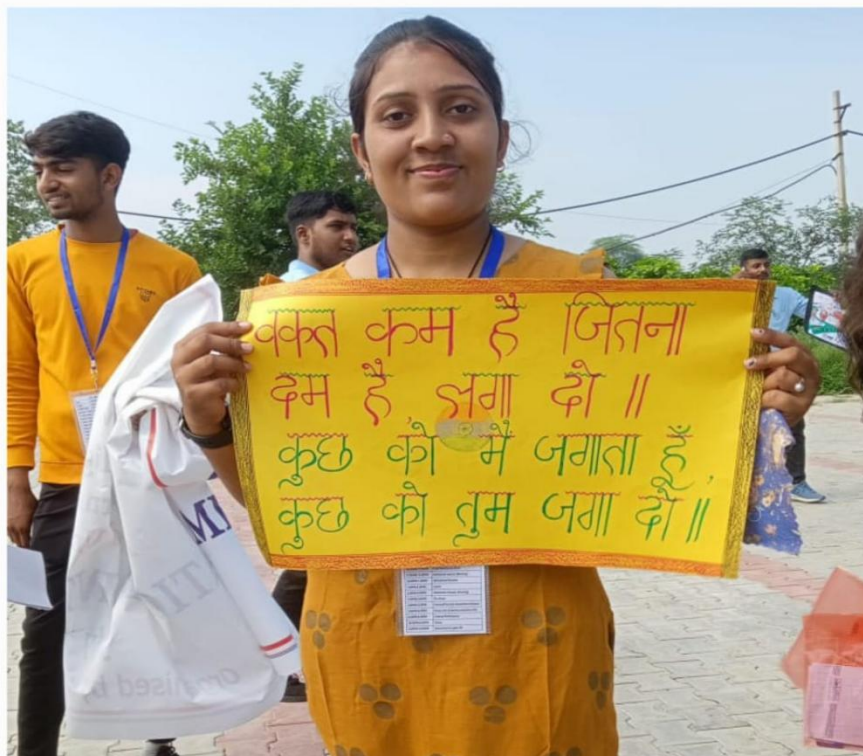 वक्त कम है जितना
दम है, लगा दो ॥
कुछ को मैं जगाता हूँ,
कुछ को तुम जगा दो ॥